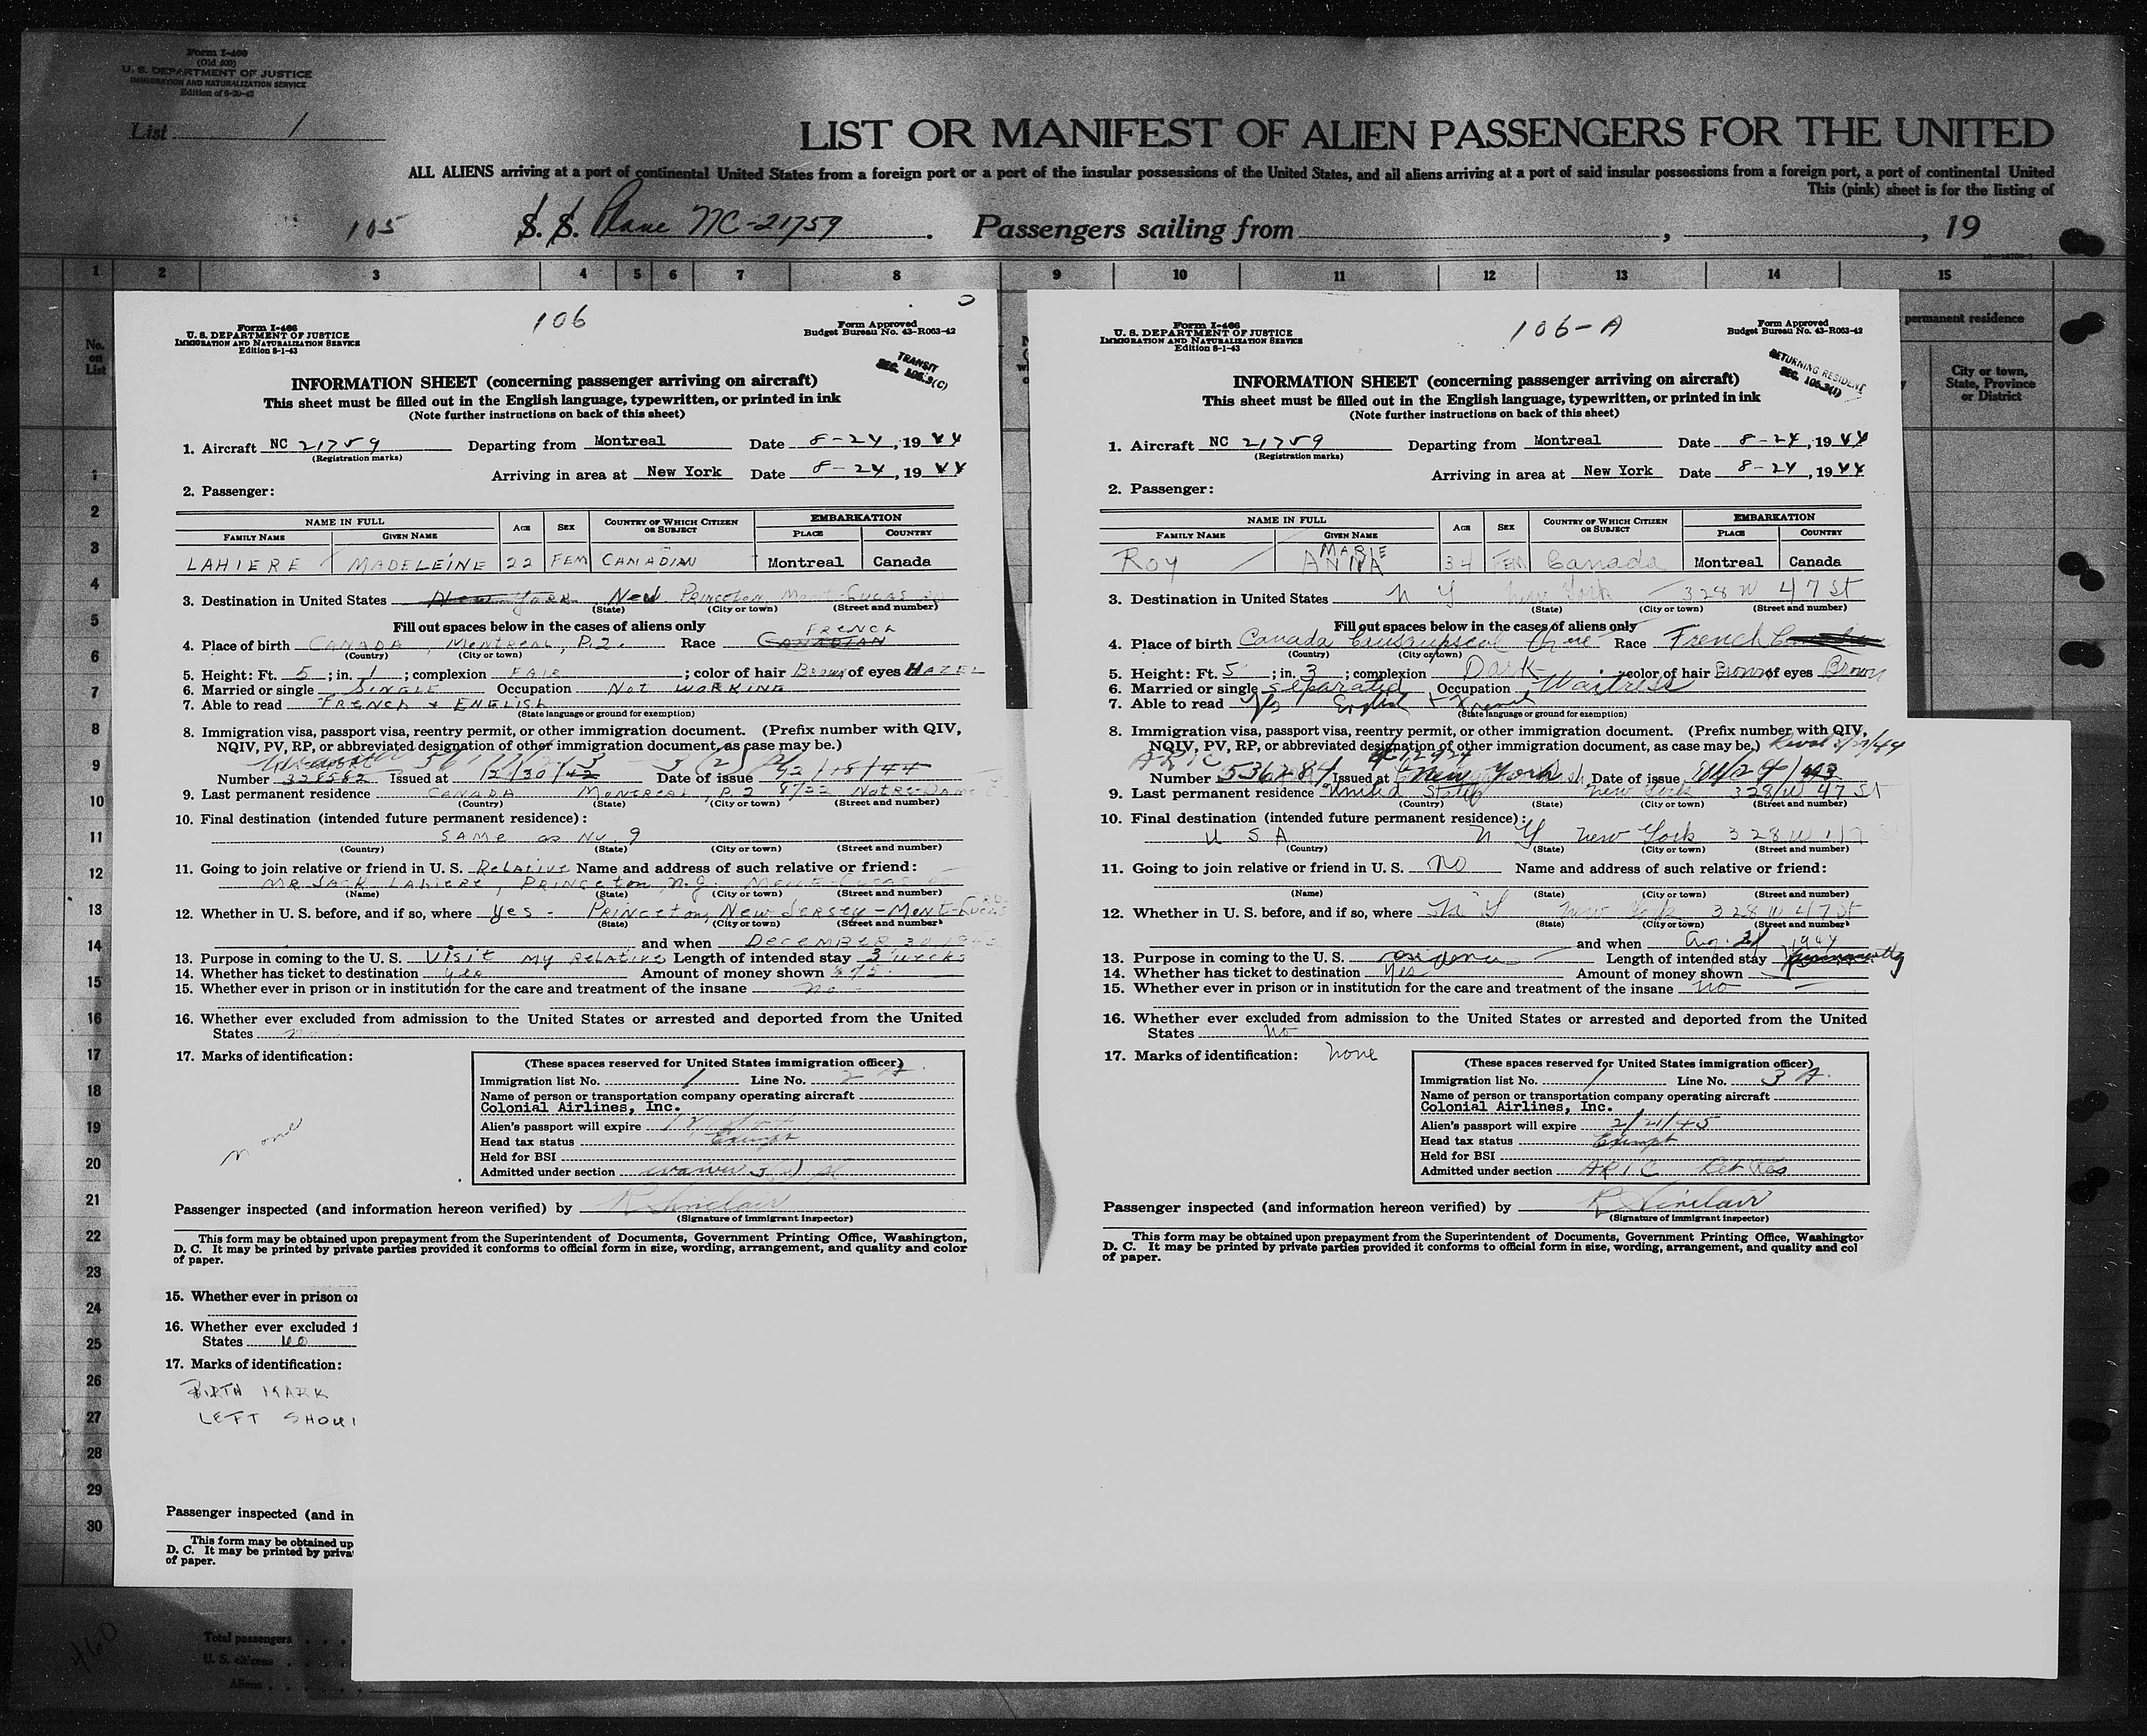 Form I-466
(Old 600)
U. S. DEPARTMENT OF JUSTICE
IMMIGRATION AND NATURALIZATION SERVICE
Edition of 6-20-42
List 1
LIST OR MANIFEST OF ALIEN PASSENGERS FOR THE UNITED
ALL ALIENS arriving at a port of continental United States from a foreign port or a port of the insular possessions of the United States, and all aliens arriving at a port of said insular possessions from a foreign port, a port of continental United
This (pink) sheet is for the listing of
105 S. S. Plane NC-21759. Passengers sailing from , , 19
1 2 3 4 5 6 7 8 9 10 11 12 13 14 15
No. on List
permanent residence
City or town, State, Province or District
1
2
3
4
5
6
7
8
9
10
11
12
13
14
15
16
17
18
19
20
21
22
23
24
25
26
27
28
29
30
106
Form I-466
U. S. DEPARTMENT OF JUSTICE
IMMIGRATION AND NATURALIZATION SERVICE
Edition 8-1-43
Form Approved
Budget Bureau No. 43-R063-42
TRANSIT
SEC. 106.3(C)
INFORMATION SHEET (concerning passenger arriving on aircraft)
This sheet must be filled out in the English language, typewritten, or printed in ink
(Note further instructions on back of this sheet)
1. Aircraft NC 21759 Departing from Montreal Date 8-24, 1944
(Registration marks)
Arriving in area at New York Date 8-24, 1944
2. Passenger:
NAME IN FULL AGE SEX COUNTRY OF WHICH CITIZEN OR SUBJECT EMBARKATION
FAMILY NAME GIVEN NAME PLACE COUNTRY
LAHIERE MADELEINE 22 FEM CANADIAN Montreal Canada
3. Destination in United States New York, New Princeton Mont-Lucas
(State) (City or town) (Street and number)
Fill out spaces below in the cases of aliens only
FRENCH
4. Place of birth CANADA, Montreal, P.2. Race CANADIAN
(Country) (City or town)
5. Height: Ft. 5; in. 1; complexion FAIR; color of hair Brown of eyes HAZEL
6. Married or single SINGLE Occupation NOT WORKING
7. Able to read FRENCH & ENGLISH
(State language or ground for exemption)
8. Immigration visa, passport visa, reentry permit, or other immigration document. (Prefix number with QIV,
NQIV, PV, RP, or abbreviated designation of other immigration document, as case may be.)
Number 328582 Issued at 12/30/42 Date of issue
9. Last permanent residence CANADA Montreal, P.2 Notre-Dame
(Country) (State) (City or town) (Street and number)
10. Final destination (intended future permanent residence):
SAME as No. 9
(Country) (State) (City or town) (Street and number)
11. Going to join relative or friend in U. S. Relative Name and address of such relative or friend:
MR Jack Lahiere, Princeton, N.J.
(Name) (State) (City or town) (Street and number)
12. Whether in U. S. before, and if so, where Yes - Princeton, New-Jersey - Mont-Lucas
(State) (City or town) (Street and number)
and when DECEMBER 30
13. Purpose in coming to the U. S. Visit my Relative Length of intended stay 3 weeks
14. Whether has ticket to destination yes Amount of money shown $75.
15. Whether ever in prison or in institution for the care and treatment of the insane no
16. Whether ever excluded from admission to the United States or arrested and deported from the United
States no
17. Marks of identification:
none
(These spaces reserved for United States immigration officer)
Immigration list No. 1 Line No. 2 A.
Name of person or transportation company operating aircraft
Colonial Airlines, Inc.
Alien's passport will expire
Head tax status Exempt
Held for BSI
Admitted under section
Passenger inspected (and information hereon verified) by R Sinclair
(Signature of immigrant inspector)
This form may be obtained upon prepayment from the Superintendent of Documents, Government Printing Office, Washington,
D. C. It may be printed by private parties provided it conforms to official form in size, wording, arrangement, and quality and color
of paper.
15. Whether ever in prison or
16. Whether ever excluded
States no
17. Marks of identification:
BIRTH MARK
LEFT SHOUL
Passenger inspected (and in
This form may be obtained up
D. C. It may be printed by priva
of paper.
460
Total passengers
U. S. citizens
Aliens
106-A
Form I-466
U. S. DEPARTMENT OF JUSTICE
IMMIGRATION AND NATURALIZATION SERVICE
Edition 8-1-43
Form Approved
Budget Bureau No. 43-R063-42
RETURNING RESIDENT
SEC. 106.3(I)
INFORMATION SHEET (concerning passenger arriving on aircraft)
This sheet must be filled out in the English language, typewritten, or printed in ink
(Note further instructions on back of this sheet)
1. Aircraft NC 21759 Departing from Montreal Date 8-24, 1944
(Registration marks)
Arriving in area at New York Date 8-24, 1944
2. Passenger:
NAME IN FULL AGE SEX COUNTRY OF WHICH CITIZEN OR SUBJECT EMBARKATION
FAMILY NAME GIVEN NAME PLACE COUNTRY
MARIE
ROY ANNA 34 FEM Canada Montreal Canada
3. Destination in United States N Y New York 328 W 47 St
(State) (City or town) (Street and number)
Fill out spaces below in the cases of aliens only
4. Place of birth Canada Race French
(Country) (City or town)
5. Height: Ft. 5; in. 3; complexion Dark; color of hair Brown of eyes Brown
6. Married or single separated Occupation Waitress
7. Able to read Yes English & French
(State language or ground for exemption)
8. Immigration visa, passport visa, reentry permit, or other immigration document. (Prefix number with QIV,
NQIV, PV, RP, or abbreviated designation of other immigration document, as case may be.)
ARIC
Number Issued at New York Date of issue
9. Last permanent residence United States New York 328 W 47 St
(Country) (State) (City or town) (Street and number)
10. Final destination (intended future permanent residence):
U S A N Y New York 328 W
(Country) (State) (City or town) (Street and number)
11. Going to join relative or friend in U. S. NO Name and address of such relative or friend:
(Name) (State) (City or town) (Street and number)
12. Whether in U. S. before, and if so, where N Y New York 328 W 47 St
(State) (City or town) (Street and number)
and when Aug. 21 1944
13. Purpose in coming to the U. S. residence Length of intended stay permanently
14. Whether has ticket to destination Yes Amount of money shown
15. Whether ever in prison or in institution for the care and treatment of the insane no
16. Whether ever excluded from admission to the United States or arrested and deported from the United
States no
17. Marks of identification: none
(These spaces reserved for United States immigration officer)
Immigration list No. 1 Line No. 3 A.
Name of person or transportation company operating aircraft
Colonial Airlines, Inc.
Alien's passport will expire 2/21/45
Head tax status Exempt
Held for BSI
Admitted under section ARIC Ret Res
Passenger inspected (and information hereon verified) by R Sinclair
(Signature of immigrant inspector)
This form may be obtained upon prepayment from the Superintendent of Documents, Government Printing Office, Washingto
D. C. It may be printed by private parties provided it conforms to official form in size, wording, arrangement, and quality and col
of paper.